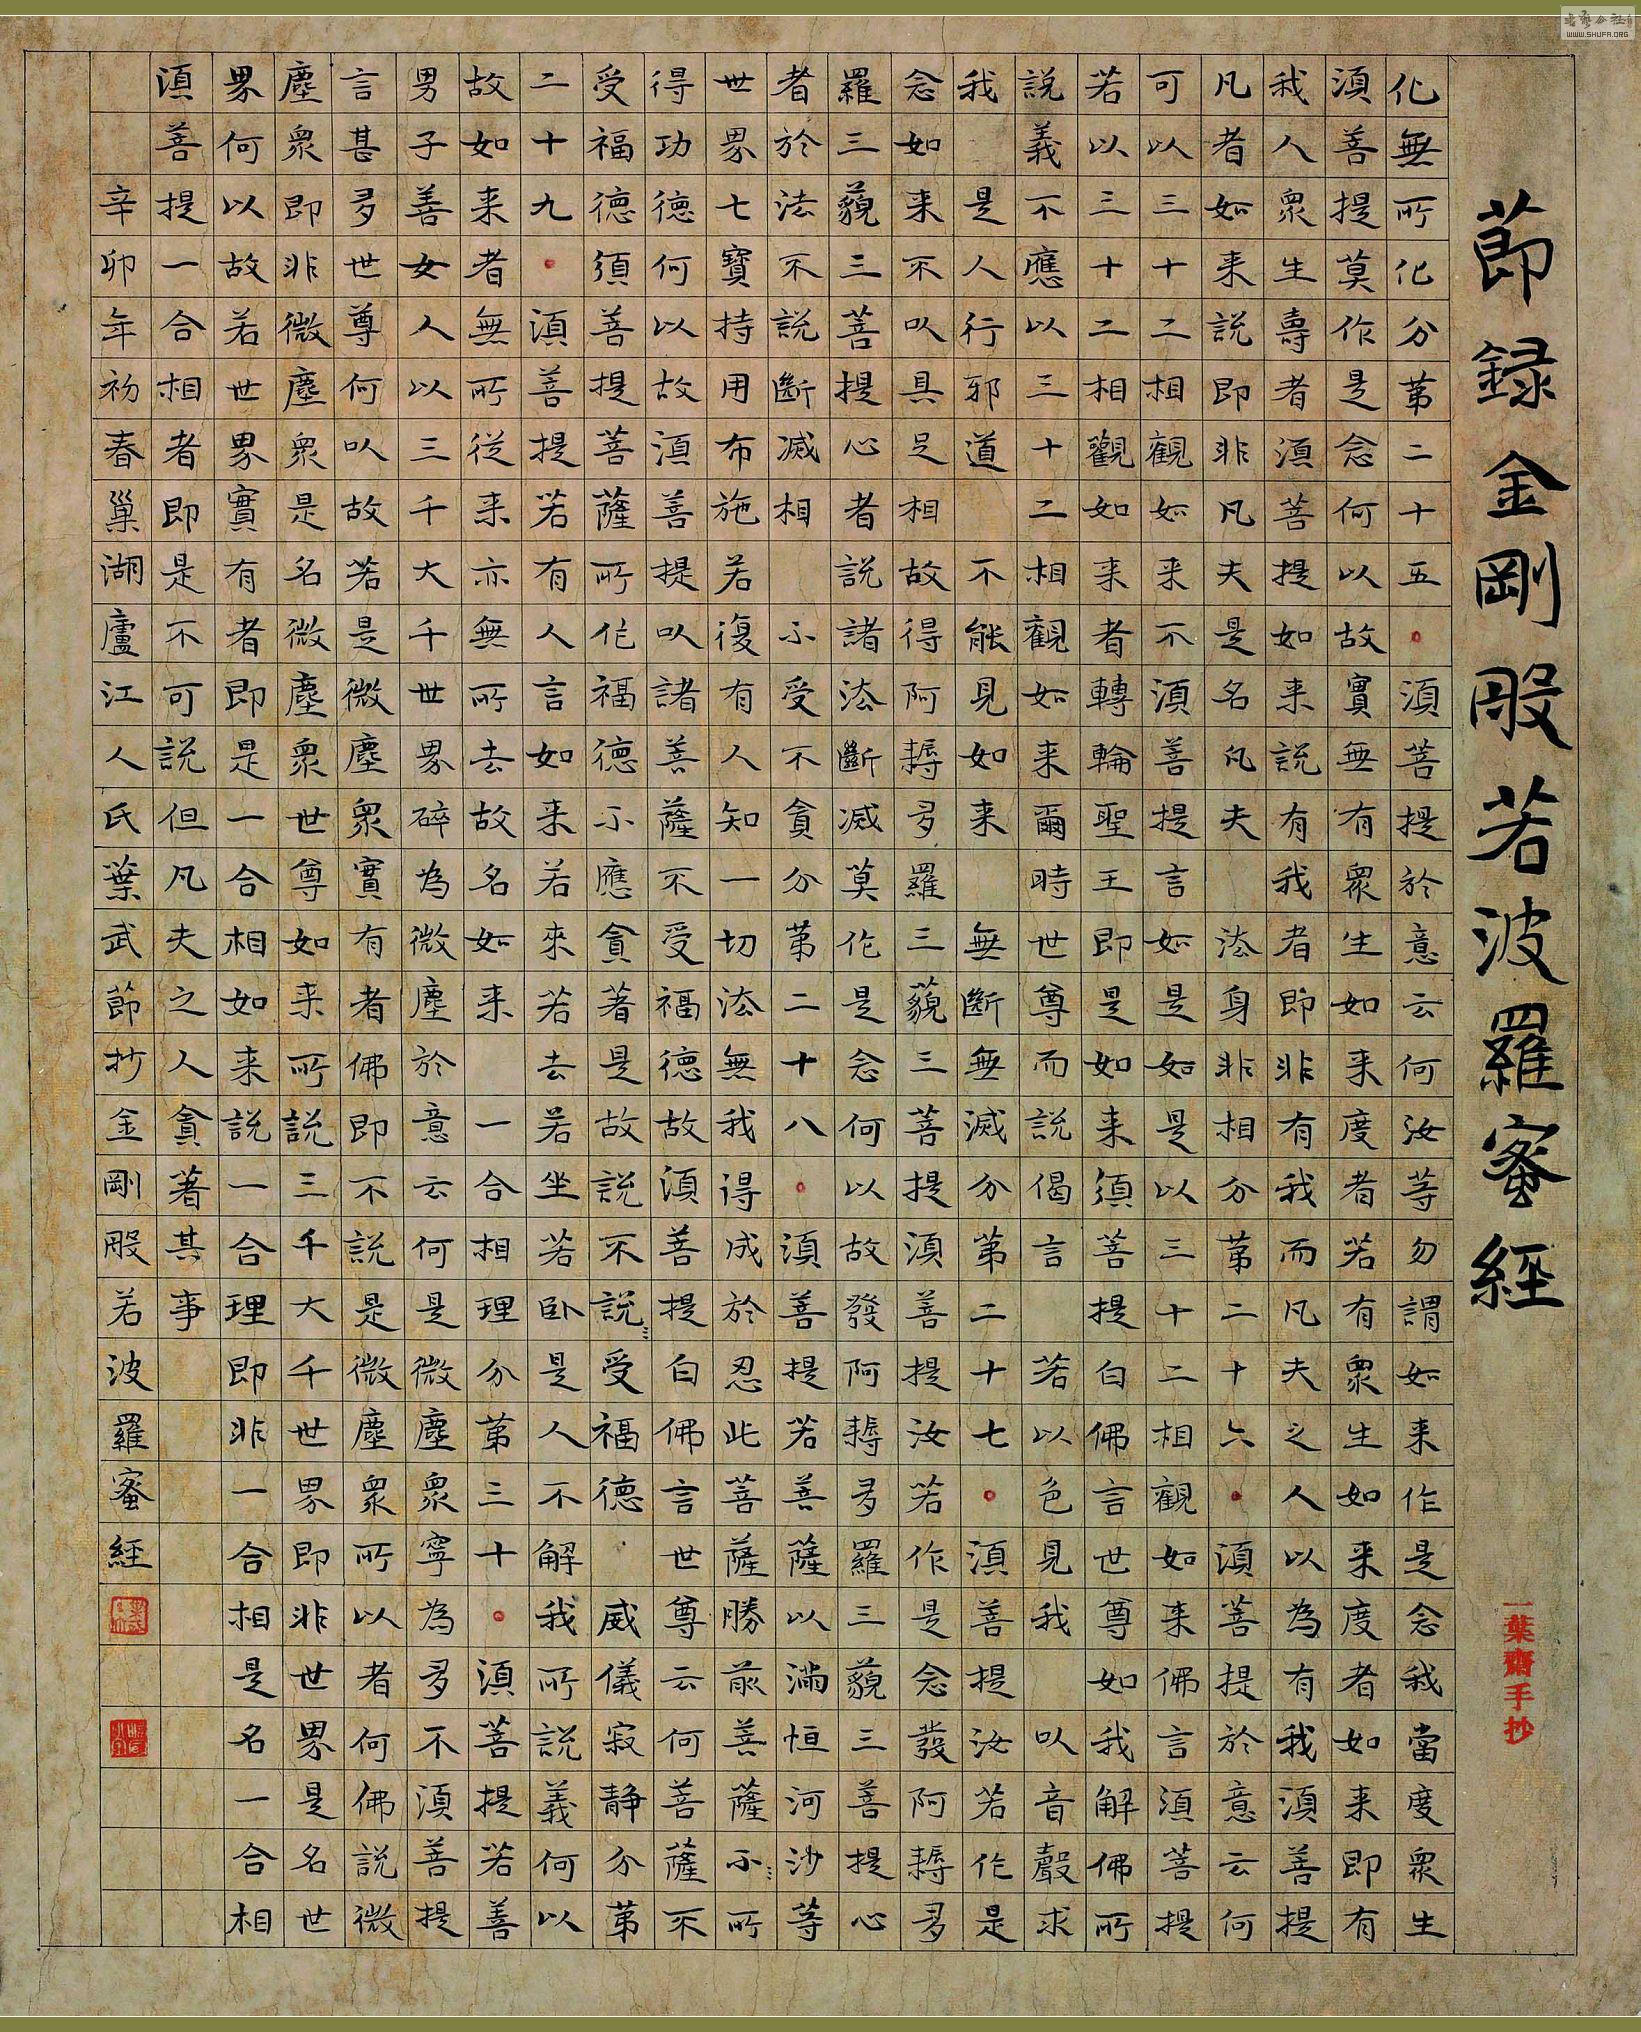 書藝公社
WWW.SHUFA.ORG
莭録金剛般若波羅蜜經
一葉齋手抄
化無所化分第二十五。湏菩提於意云何汝等勿謂如来作是念我當度衆生
湏菩提莫作是念何以故實無有衆生如来度者若有衆生如来度者如来即有
我人衆生壽者湏菩提如来説有我者即非有我而凡夫之人以為有我湏菩提
凡者如来説即非凡夫是名凡夫 法身非相分第二十六。湏菩提於意云何
可以三十二相觀如来不湏菩提言如是如是以三十二相觀如来佛言湏菩提
若以三十二相觀如来者轉輪聖王即是如来須菩提白佛言世尊如我解佛所
説義不應以三十二相觀如来爾時世尊而説偈言 若以色見我 以音聲求
我 是人行邪道 不能見如来 無斷無滅分第二十七。湏菩提汝若作是
念如来不以具足相故得阿耨多羅三藐三菩提湏菩提汝若作是念發阿耨多
羅三藐三菩提心者説諸法斷滅莫作是念何以故發阿耨多羅三藐三菩提心
者於法不説斷滅相 不受不貪分第二十八。湏菩提若菩薩以滿恒河沙等
世界七寶持用布施若復有人知一切法無我得成於忍此菩薩勝前菩薩不所
得功德何以故湏菩提以諸菩薩不受福德故湏菩提白佛言世尊云何菩薩不
受福德須菩提菩薩所作福德不應貪著是故説不説受福德 威儀寂静分第
二十九。湏菩提若有人言如来若來若去若坐若卧是人不解我所説義何以
故如来者無所從来亦無所去故名如来 一合相理分第三十。湏菩提若善
男子善女人以三千大千世界碎為微塵於意云何是微塵衆寧為多不湏菩提
言甚多世尊何以故若是微塵衆實有者佛即不説是微塵衆所以者何佛説微
塵衆即非微塵衆是名微塵衆世尊如来所説三千大千世界即非世界是名世
界何以故若世界實有者即是一合相如来説一合相理即非一合相是名一合相
湏菩提一合相者即是不可説但凡夫之人貪著其事
辛卯年初春巢湖廬江人氏葉武莭抄金剛般若波羅蜜經